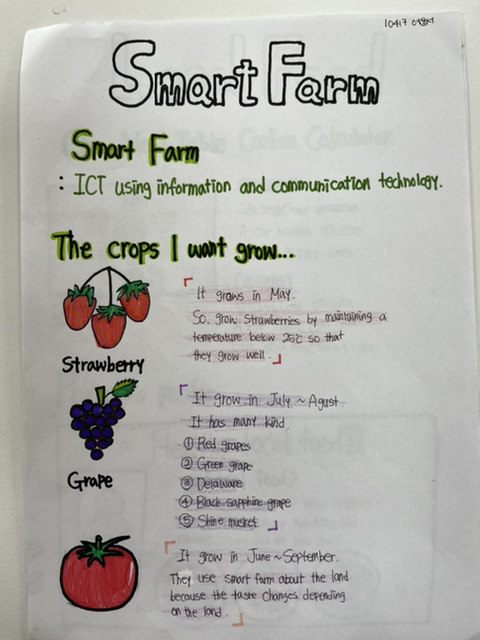 10417
Smart Farm
Smart Farm
: ICT using information and communication technology.
The crops I want grow...
It grows in May.
So, grow Strawberries by maintaining a
temperature below 25℃ so that
they grow well.
Strawberry
It grow in July ~ Agust.
It has many kind
① Red grapes
② Green grape
③ Delaware
④ Black sapphire grape
⑤ Shine musket
Grape
It grow in June ~ September.
They use smart farm about the land
because the taste changes depending
on the land.